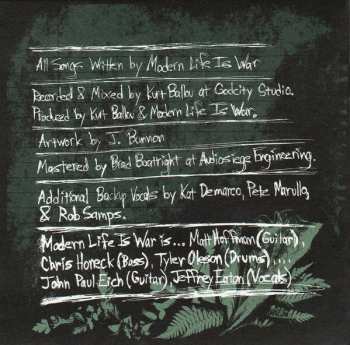 All Songs Written by Modern Life Is War
Recorded & Mixed by Kurt Ballou at Godcity Studio.
Produced by Kurt Ballou & Modern Life Is War.
Artwork by J. Bannon
Mastered by Brad Boatright at Audiosiege Engineering.
Additional Backup Vocals by Kat Demarco, Pete Marullo,
& Rob Samps.
Modern Life Is War is... Matt Hoffman (Guitar),
Chris Honeck (Bass), Tyler Oleson (Drums), ...
John Paul Eich (Guitar), Jeffrey Eaton (Vocals)